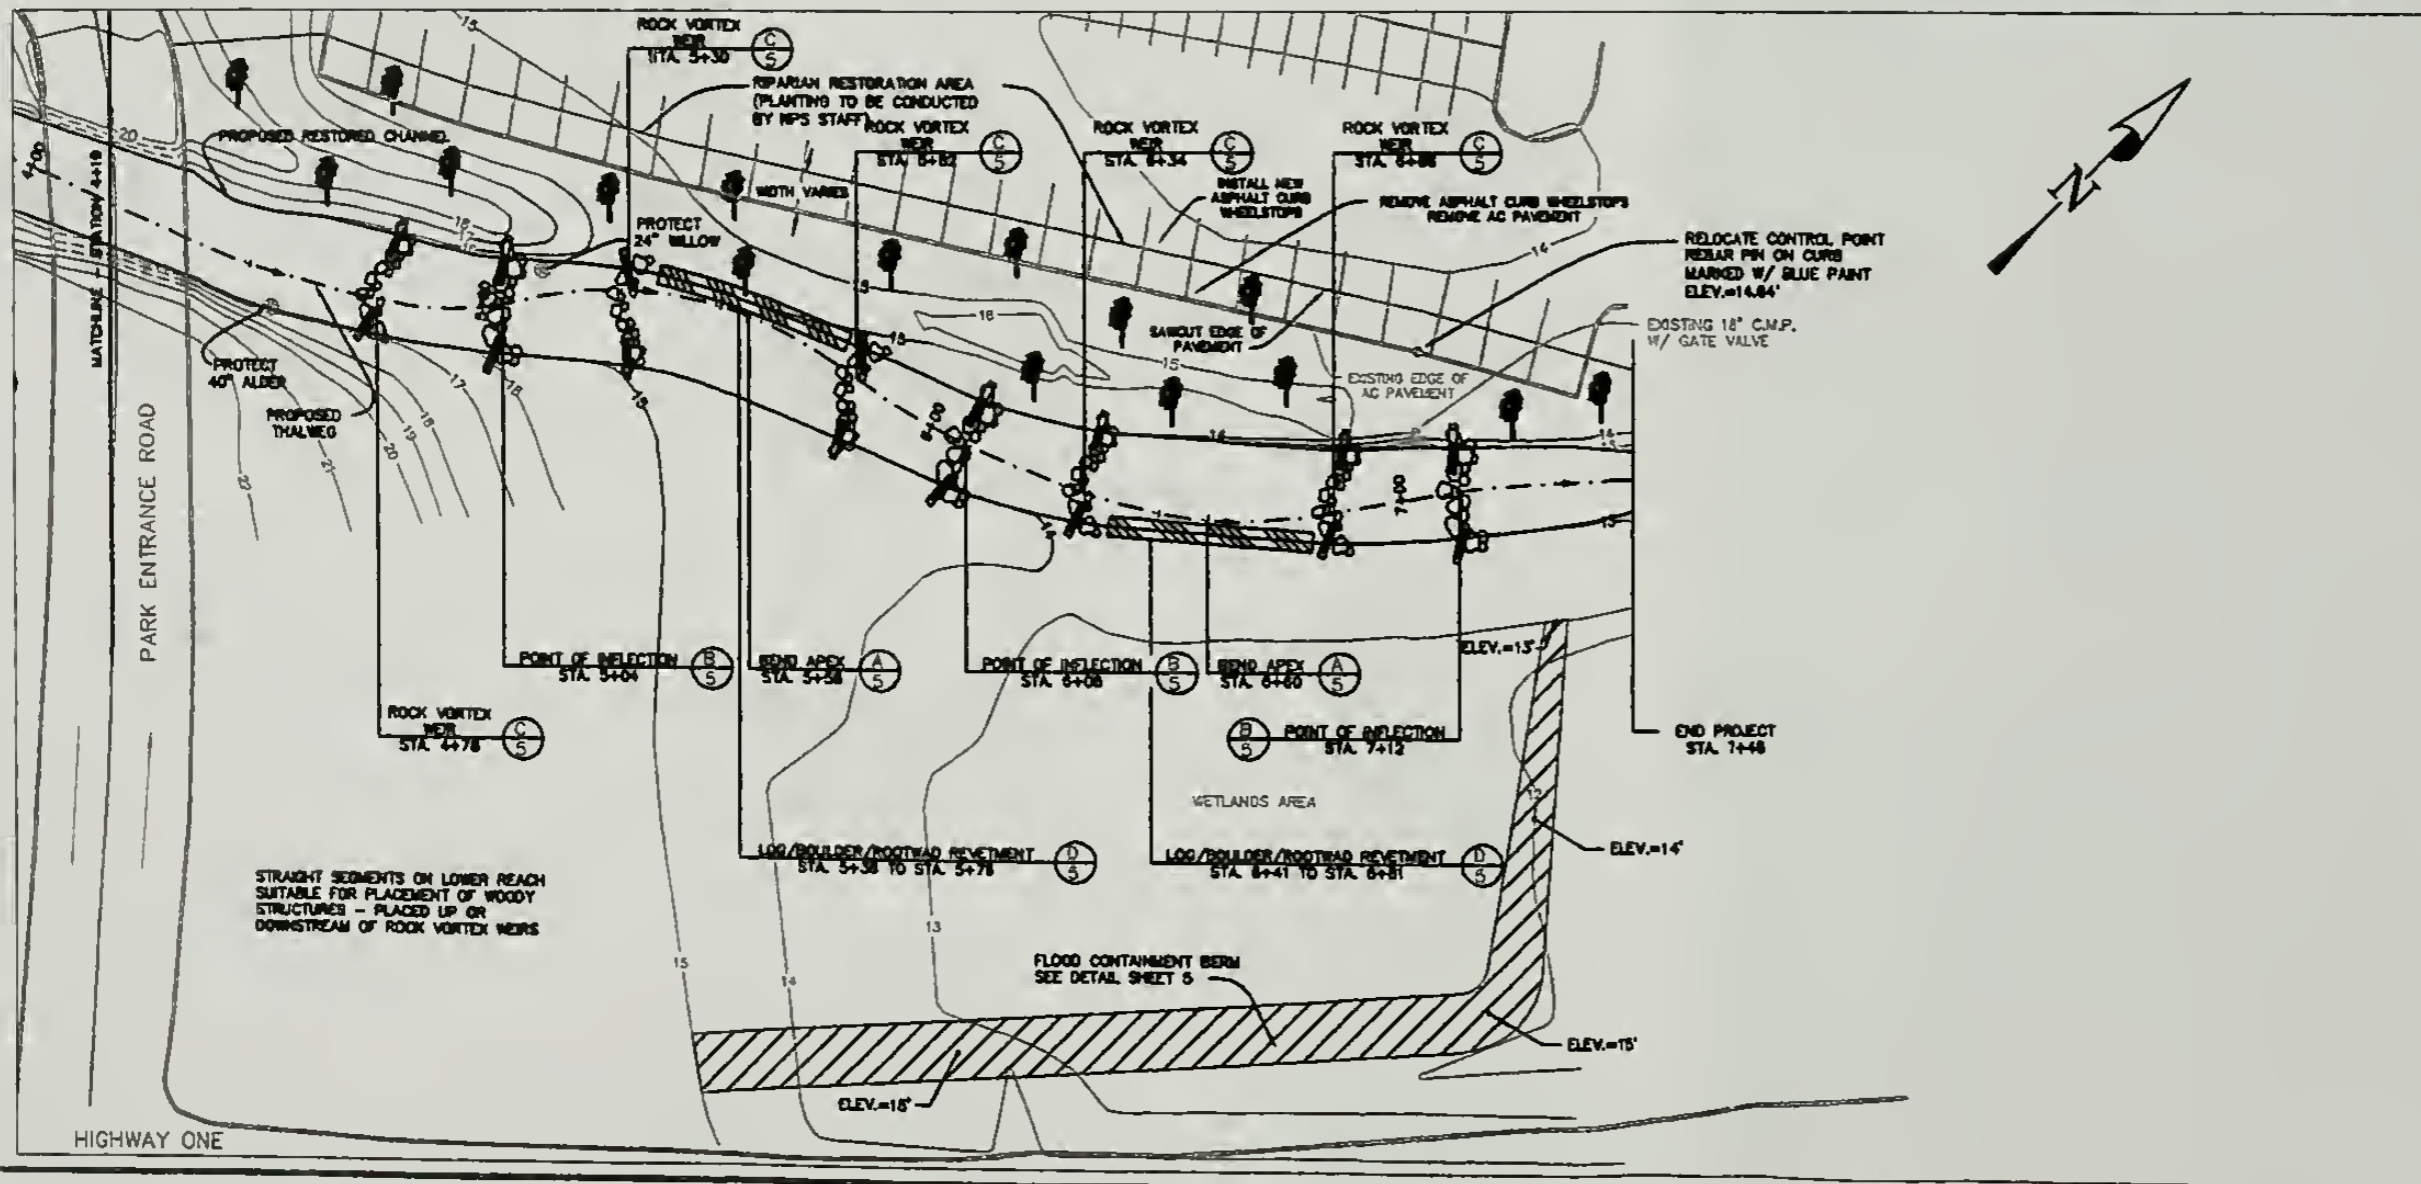 ROCK VORTEX
WEIR
STA. 5+30
C
5
RIPARIAN RESTORATION AREA
(PLANTING TO BE CONDUCTED
BY NPS STAFF)
ROCK VORTEX
WEIR
C
5
ROCK VORTEX
WEIR
STA. 6+34
C
5
ROCK VORTEX
WEIR
C
5
15
20
PROPOSED RESTORED CHANNEL
4+00
MATCHLINE - STATION 4+19
WIDTH VARIES
INSTALL NEW
ASPHALT CURB
WHEELSTOPS
REMOVE ASPHALT CURB WHEELSTOPS
REMOVE AC PAVEMENT
N
PROTECT
24" WILLOW
14
RELOCATE CONTROL POINT
REBAR PIN ON CURB
MARKED W/ BLUE PAINT
ELEV.=14.64'
EXISTING 18" C.M.P.
W/ GATE VALVE
16
SAWCUT EDGE OF
PAVEMENT
15
15
EXISTING EDGE OF
AC PAVEMENT
PROTECT
40" ALDER
PROPOSED
THALWEG
17
16
18
19
20
21
22
15
6+00
14
14
7+00
13
14
PARK ENTRANCE ROAD
POINT OF INFLECTION
STA. 5+04
B
5
BEND APEX
STA. 5+58
A
5
POINT OF INFLECTION
STA. 6+08
B
5
BEND APEX
STA. 6+60
A
5
ELEV.=13'
ROCK VORTEX
WEIR
STA. 4+78
C
5
B
5
POINT OF INFLECTION
STA. 7+12
END PROJECT
STA. 7+48
WETLANDS AREA
12
LOG/BOULDER/ROOTWAD REVETMENT
STA. 5+38 TO STA. 5+78
D
5
LOG/BOULDER/ROOTWAD REVETMENT
STA. 6+41 TO STA. 6+81
D
5
ELEV.=14'
STRAIGHT SEGMENTS ON LOWER REACH
SUITABLE FOR PLACEMENT OF WOODY
STRUCTURES - PLACED UP OR
DOWNSTREAM OF ROCK VORTEX WEIRS
15
14
13
FLOOD CONTAINMENT BERM
SEE DETAIL SHEET 5
ELEV.=15'
ELEV.=15'
HIGHWAY ONE